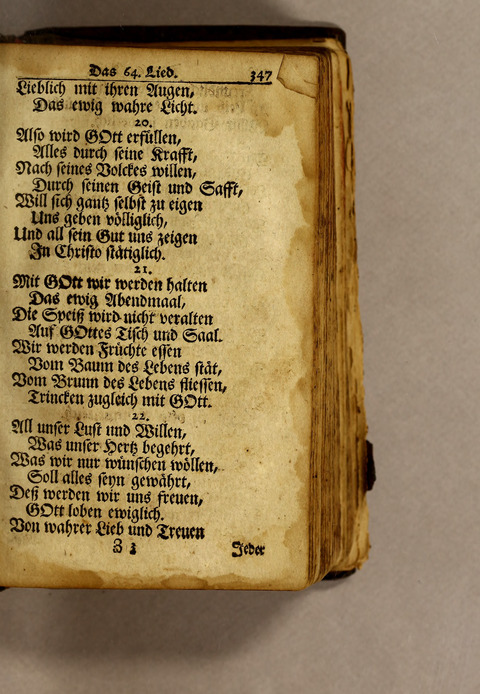 Das 64. Lied. 347
Lieblich mit ihren Augen,
Das ewig wahre Licht.
20.
Also wird GOtt erfüllen,
Alles durch seine Krafft,
Nach seines Volckes willen,
Durch seinen Geist und Safft,
Will sich gantz selbst zu eigen
Uns geben völliglich,
Und all sein Gut uns zeigen
In Christo stätiglich.
21.
Mit GOtt wir werden halten
Das ewig Abendmaal,
Die Speiß wird nicht veralten
Auf GOttes Tisch und Saal.
Wir werden Früchte essen
Vom Baum des Lebens stät,
Vom Brunn des Lebens fliessen,
Trincken zugleich mit GOtt.
22.
All unser Lust und Willen,
Was unser Hertz begehrt,
Was wir nur wünschen wöllen,
Soll alles seyn gewährt,
Deß werden wir uns freuen,
GOtt loben ewiglich.
Von wahrer Lieb und Treuen
Z 3 Jeder